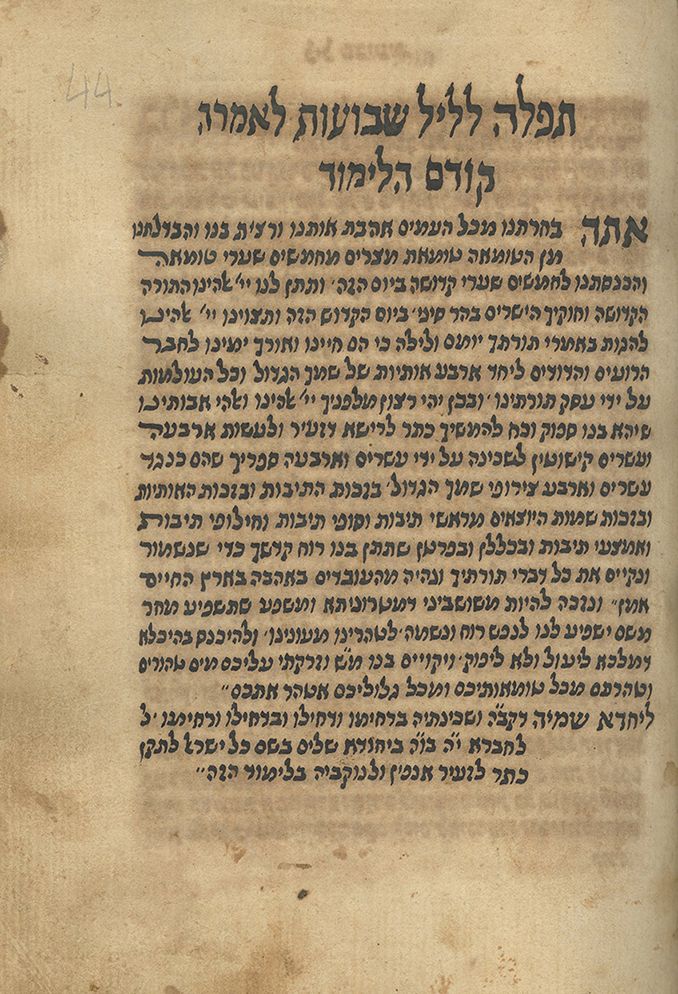 44
תפלה לליל שבועות לאמרה
קודם הלימוד
אתה בחרתנו מכל העמים אהבת אותנו ורצית בנו והבדלתנו
מן הטומאה טומאת מצרים מחמשים שערי טומאה
והכנסתנו לחמשים שערי קדושה ביום הזה׳ ותתן לנו יי׳ אלהינו התורה
הקדושה וחוקיך הישרים בהר סיני׳ ביום הקדוש הזה ותצוינו יי׳ אלהינו
להגות באמרי תורתך יומם ולילה כי הם חיינו ואורך ימינו לחבר
הרועים והדודים ליחד ארבע אותיות של שמך הגדול וכל העולמות
על ידי עסק תורתינו׳ ובכן יהי רצון מלפניך יי׳ אלהינו ואלהי אבותינו
שיהא בנו ספוק וכח להמשיך כתר לרישא דזעיר ולעשות ארבעה
ועשרים קישוטין לשכינה על ידי עשרים וארבעה ספריך שהם כנגד
עשרים וארבע צירופי שמך הגדול׳ בזכות התיבות ובזכות האותיות
ובזכות שמות היוצאים מראשי תיבות וסופי תיבות וחילופי תיבות
ואמצעי תיבות ובכללן ובפרטן שתתן בנו רוח קדשך כדי שנשמור
ונקיים את כל דברי תורתיך ונהיה מהעובדים באהבה בארץ החיים
אמן״ ונזכה להיות משושביני דמטרוניתא ומשפע שתשפיע מחר
משם ישפיע לנו לנפש רוח ונשמה׳ לטהרינו מעונינו׳ ולהיכנס בהיכלא
דמלכא ליעול ולא ליפוק׳ ויקויים בנו מ״ש וזרקתי עליכם מים טהורים
וטהרתם מכל טומאותיכם ומכל גלוליכם אטהר אתכם״
ליחדא שמיה דקב״ה ושכינתיה ברחימו ודחילו ובדחילו ורחימו׳ ל
לחברא י״ה בו״ה ביחודא שלים בשם כל ישראל לתקן
כתר לזעיר אנפין ולנוקביה בלימוד הזה״